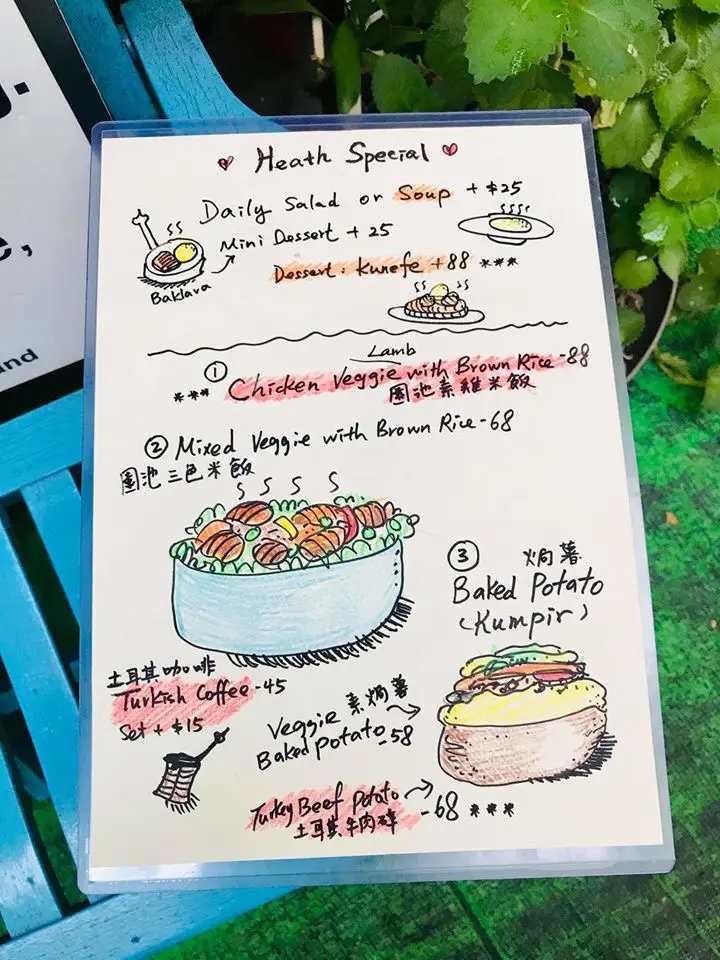 Heath Special
Daily Salad or Soup + $25
Mini Dessert + 25
Baklava
Dessert: Kunefe +88 ***
Lamb
*** ① Chicken Veggie with Brown Rice -88
園池素雞米飯
② Mixed Veggie with Brown Rice -68
園池三色米飯
③ 焗薯
Baked Potato
(Kumpir)
土耳其咖啡
Turkish Coffee -45
Set + $15
Veggie 素焗薯
Baked Potato -58
Turkey Beef Potato -68 ***
土耳其牛肉碎